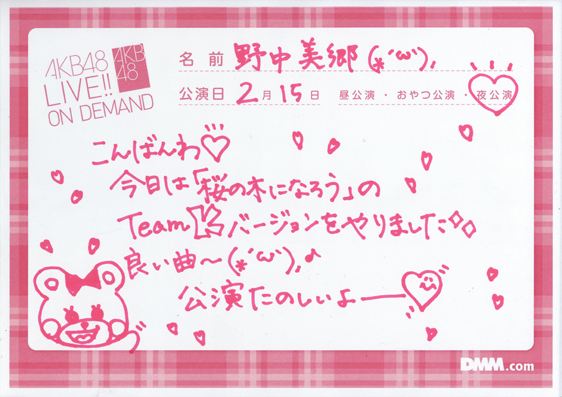 AKB48
LIVE!!
ON DEMAND
AKB
48
名前 野中美郷(*´ω`),
公演日 2月15日 昼公演・おやつ公演・夜公演
こんばんわ♡
今日は「桜の木になろう」の
Team Kバージョンをやりました
良い曲～(*´ω`),♪
公演たのしいよー
DMM.com